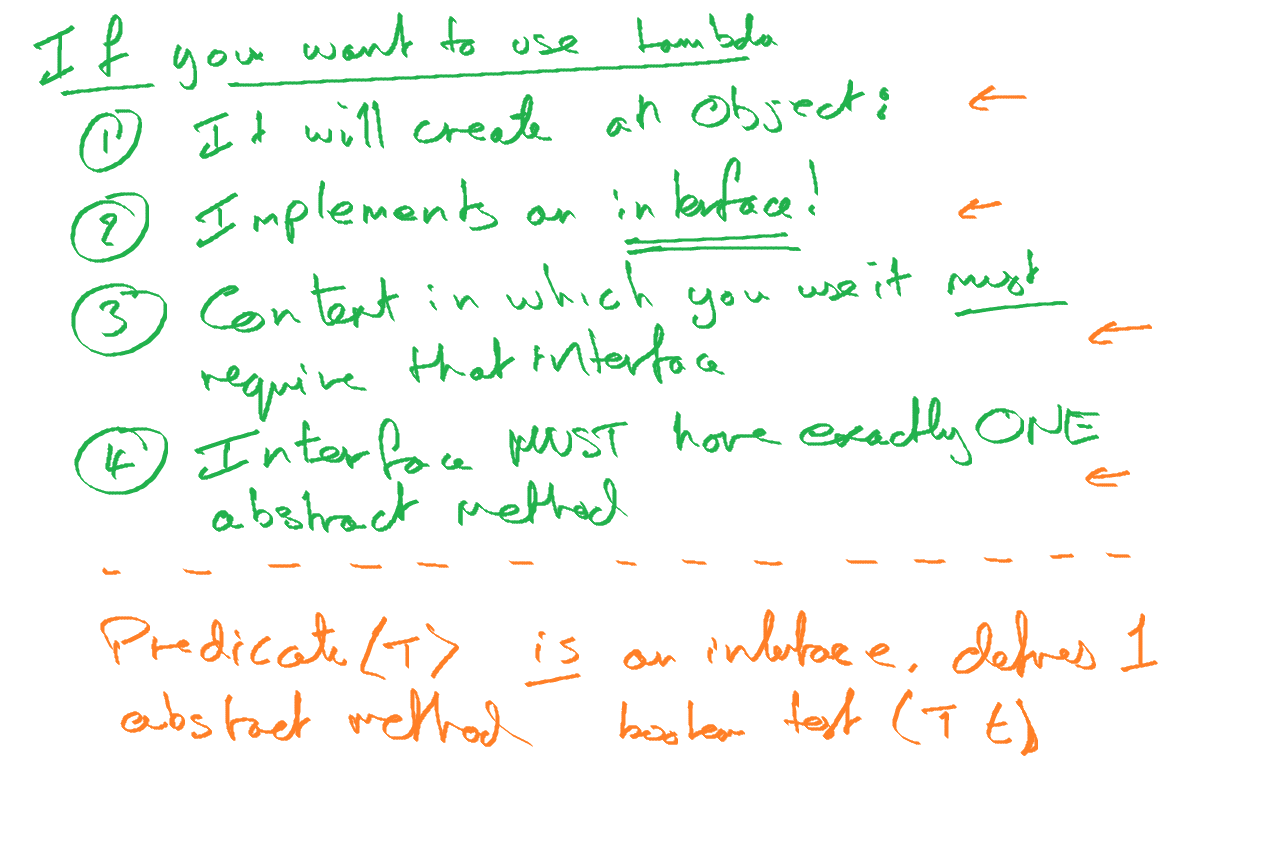 If you want to use Lambda
① It will create an Object!
② Implements an interface!
③ Context in which you use it must
require that interface
④ Interface MUST have exactly ONE
abstract method
Predicate<T> is an interface. defines 1
abstract method boolean test (T t)